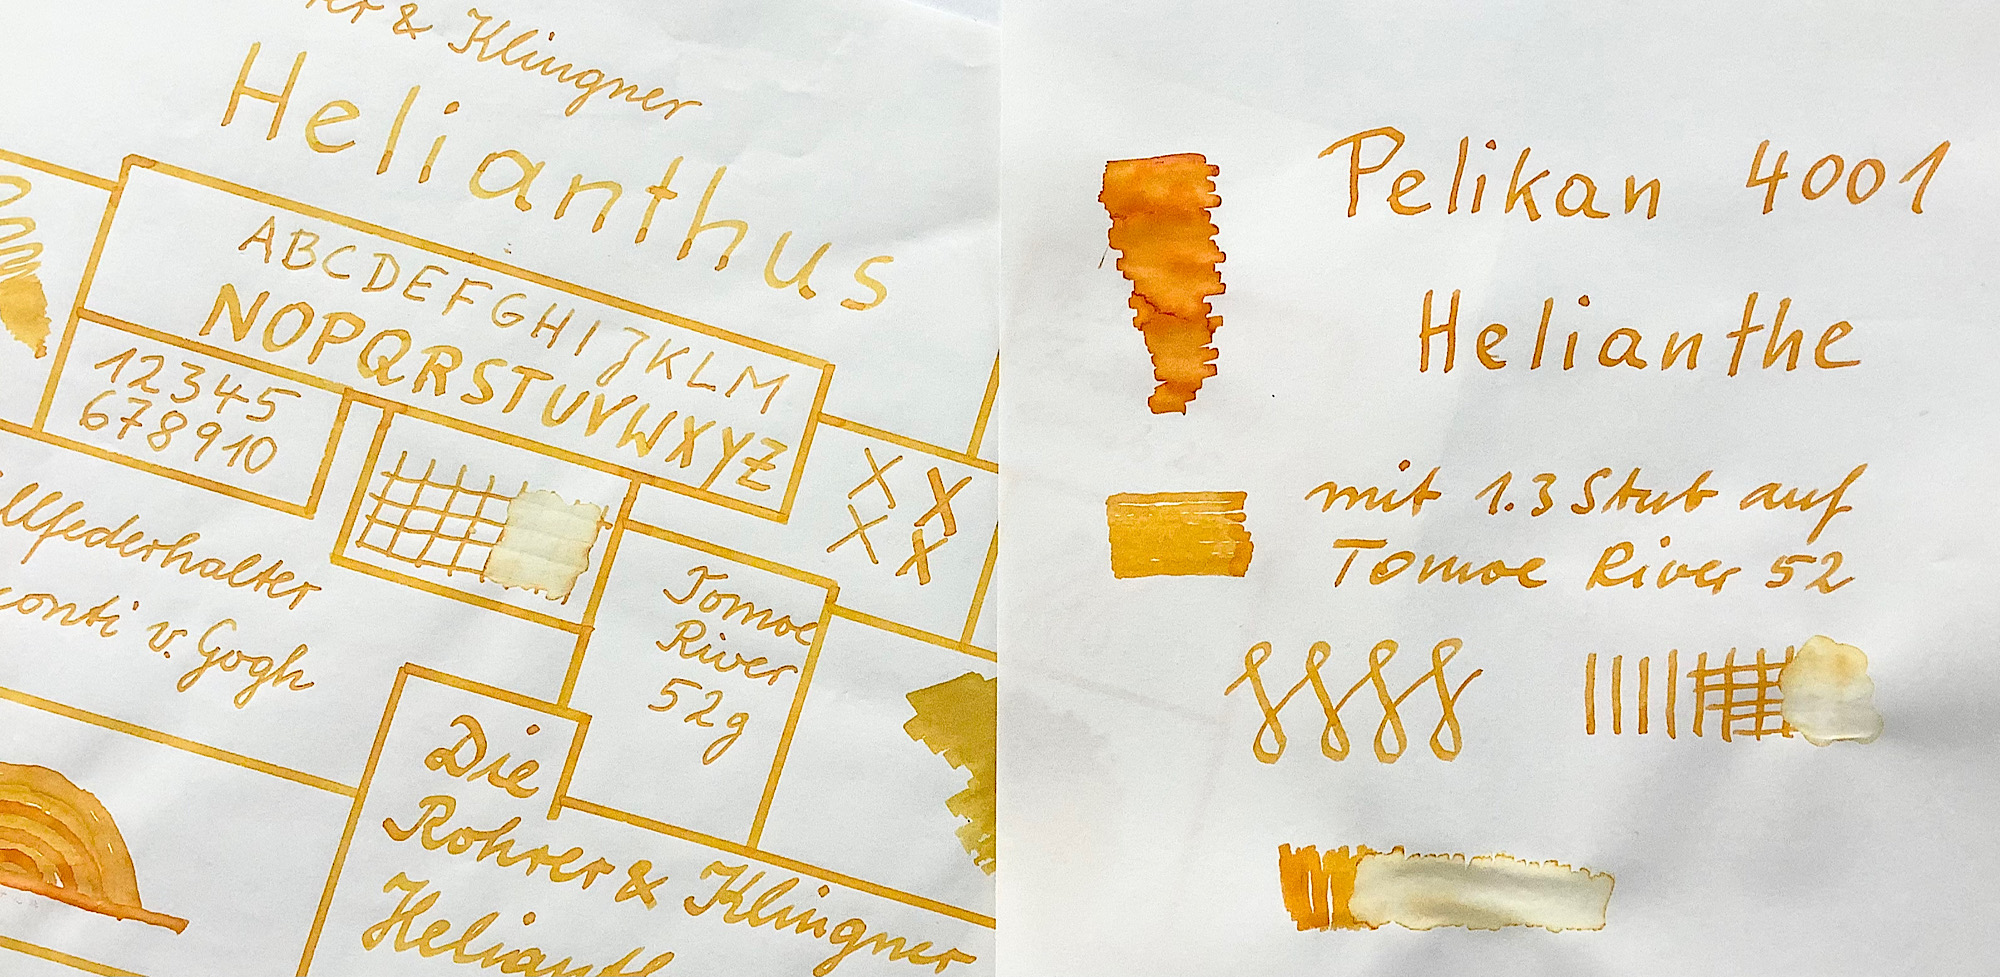 & Klingner
Helianthus
ABCDEFGHIJKLM
NOPQRSTUVWXYZ
12345
678910
XX
XX
v. Gogh
Tomoe
River
52g
Die
Rohrer & Klingner
Pelikan 4001
Helianthe
mit 1.3 Stub auf
Tomoe River 52